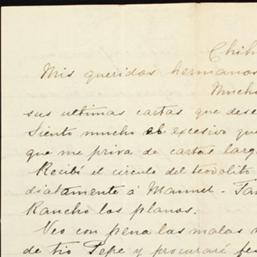 Chih
Mis queridos hermanos
Mucho
sus ultimas cartas que dese
Siento mucho el excesivo que
que me priva de cartas larg
Recibí el circulo del teodolito
diatamente á Manuel - Tam
Rancho los planos.
Veo con pena las malas n
de tio Pepe y procuraré fe